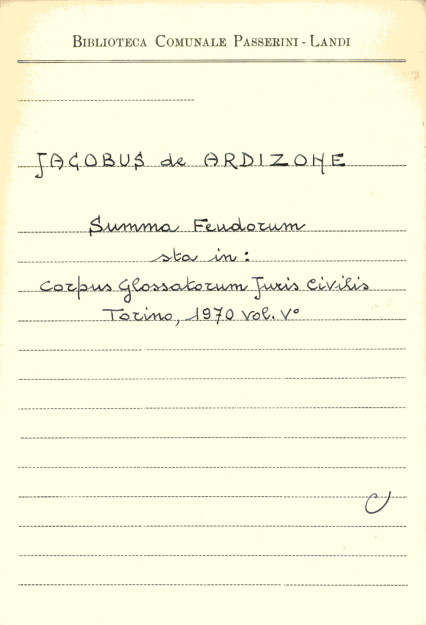 BIBLIOTECA COMUNALE PASSERINI - LANDI
JACOBUS de ARDIZONE
Summa Feudorum
sta in:
Corpus Glossatorum Juris Civilis
Torino, 1970 Vol. V°